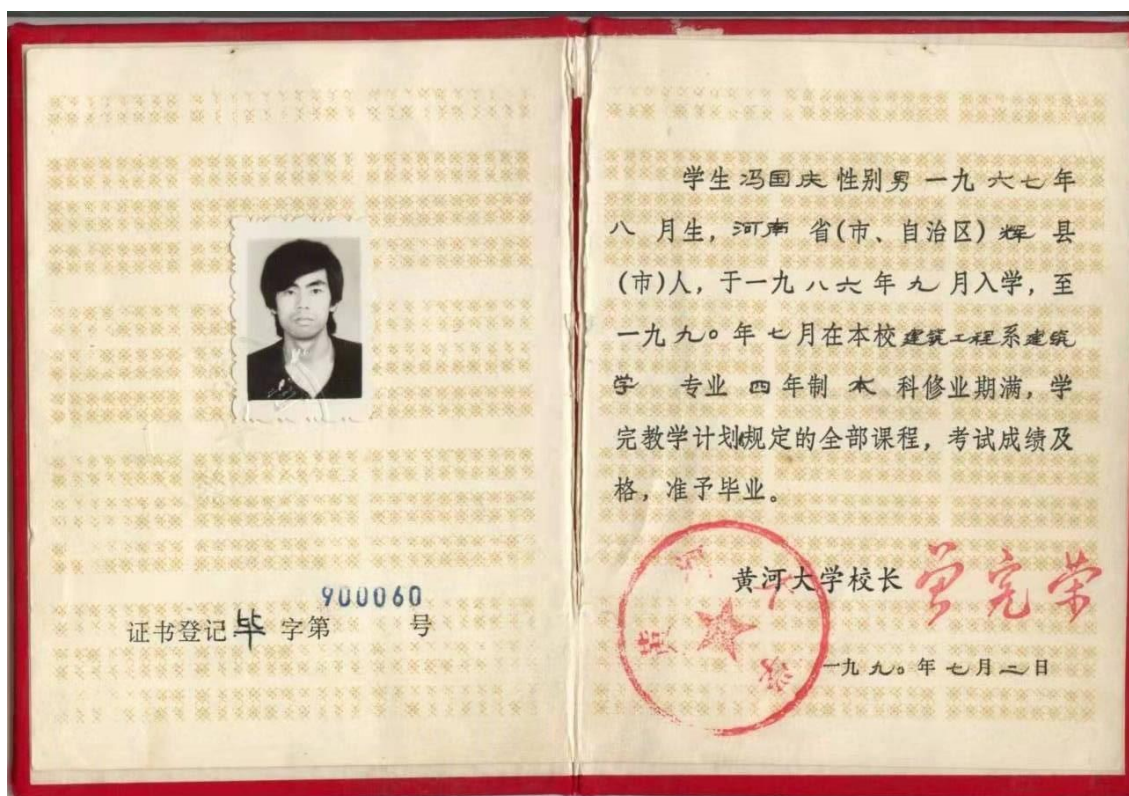 900060
证书登记毕字第 号
学生冯国庆性别男一九六七年
八月生,河南省(市、自治区)辉县
(市)人,于一九八六年九月入学,至
一九九〇年七月在本校建筑工程系建筑
学 专业 四年制 本 科修业期满,学
完教学计划规定的全部课程,考试成绩及
格,准予毕业。
黄河大学校长
黄河大学
一九九〇年七月二日